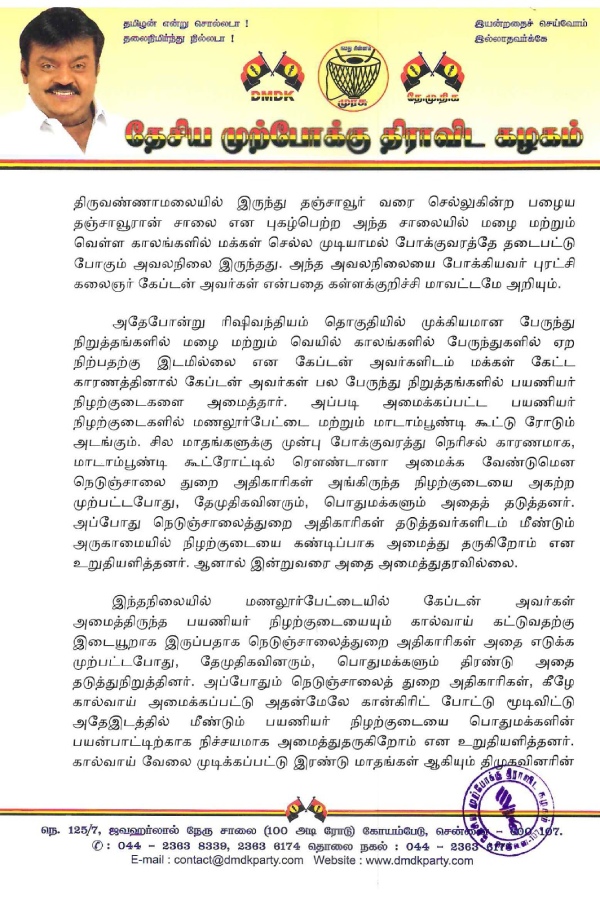 தமிழன் என்று சொல்லடா !
தலைநிமிர்ந்து நில்லடா !
இயன்றதைச் செய்வோம்
இல்லாதவர்க்கே
DMDK
முரசு
தே.மு.தி.க
தேசிய முற்போக்கு திராவிட கழகம்
திருவண்ணாமலையில் இருந்து தஞ்சாவூர் வரை செல்லுகின்ற பழைய
தஞ்சாவூரான் சாலை என புகழ்பெற்ற அந்த சாலையில் மழை மற்றும்
வெள்ள காலங்களில் மக்கள் செல்ல முடியாமல் போக்குவரத்தே தடைபட்டு
போகும் அவலநிலை இருந்தது. அந்த அவலநிலையை போக்கியவர் புரட்சி
கலைஞர் கேப்டன் அவர்கள் என்பதை கள்ளக்குறிச்சி மாவட்டமே அறியும்.
அதேபோன்று ரிஷிவந்தியம் தொகுதியில் முக்கியமான பேருந்து
நிறுத்தங்களில் மழை மற்றும் வெயில் காலங்களில் பேருந்துகளில் ஏற
நிற்பதற்கு இடமில்லை என கேப்டன் அவர்களிடம் மக்கள் கேட்ட
காரணத்தினால் கேப்டன் அவர்கள் பல பேருந்து நிறுத்தங்களில் பயணியர்
நிழற்குடைகளை அமைத்தார். அப்படி அமைக்கப்பட்ட பயணியர்
நிழற்குடைகளில் மணலூர்பேட்டை மற்றும் மாடாம்பூண்டி கூட்டு ரோடும்
அடங்கும். சில மாதங்களுக்கு முன்பு போக்குவரத்து நெரிசல் காரணமாக,
மாடாம்பூண்டி கூட்ரோட்டில் ரௌண்டானா அமைக்க வேண்டுமென
நெடுஞ்சாலை துறை அதிகாரிகள் அங்கிருந்த நிழற்குடையை அகற்ற
முற்பட்டபோது, தேமுதிகவினரும், பொதுமக்களும் அதைத் தடுத்தனர்.
அப்போது நெடுஞ்சாலைத்துறை அதிகாரிகள் தடுத்தவர்களிடம் மீண்டும்
அருகாமையில் நிழற்குடையை கண்டிப்பாக அமைத்து தருகிறோம் என
உறுதியளித்தனர். ஆனால் இன்றுவரை அதை அமைத்துதரவில்லை.
இந்தநிலையில் மணலூர்பேட்டையில் கேப்டன் அவர்கள்
அமைத்திருந்த பயணியர் நிழற்குடையையும் கால்வாய் கட்டுவதற்கு
இடையூறாக இருப்பதாக நெடுஞ்சாலைத்துறை அதிகாரிகள் அதை எடுக்க
முற்பட்டபோது, தேமுதிகவினரும், பொதுமக்களும் திரண்டு அதை
தடுத்துநிறுத்தினர். அப்போதும் நெடுஞ்சாலைத் துறை அதிகாரிகள், கீழே
கால்வாய் அமைக்கப்பட்டு அதன்மேலே கான்கிரிட் போட்டு மூடிவிட்டு
அதேஇடத்தில் மீண்டும் பயணியர் நிழற்குடையை பொதுமக்களின்
பயன்பாட்டிற்காக நிச்சயமாக அமைத்துதருகிறோம் என உறுதியளித்தனர்.
கால்வாய் வேலை முடிக்கப்பட்டு இரண்டு மாதங்கள் ஆகியும் திமுகவினரின்
நெ. 125/7, ஜவஹர்லால் நேரு சாலை (100 அடி ரோடு) கோயம்பேடு, சென்னை - 600 107.
✆ : 044 - 2363 8339, 2363 6174 தொலை நகல் : 044 - 2363 6176
E-mail : contact@dmdkparty.com Website : www.dmdkparty.com